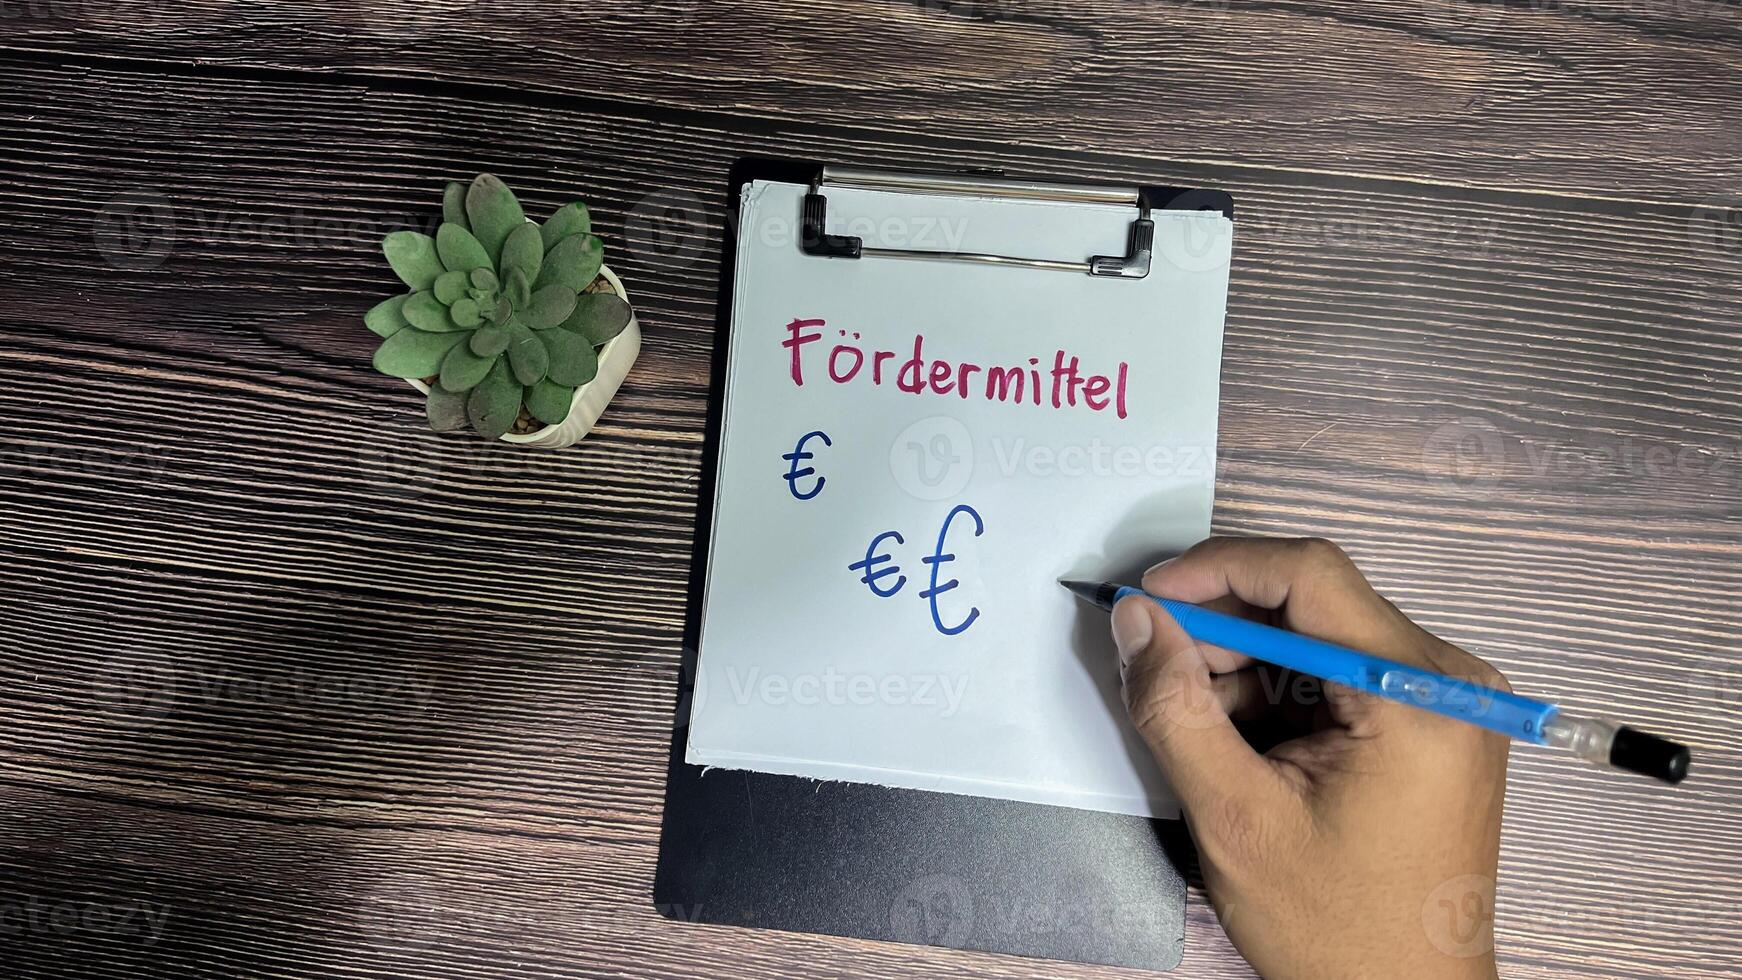 Fördermittel
€
€ €
Vecteezy